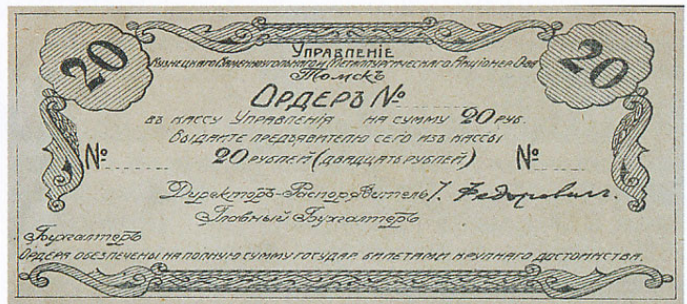 20
20
Управленіе
Кузнецкаго Каменноугольнаго и Металлургическаго Акціонер. О-ва
Томскъ
Ордеръ №
въ кассу Управленія на сумму 20 руб.
Выдайте предъявителю сего изъ кассы
№ 20 рублей (двадцать рублей) №
Директоръ-Распорядитель І. Федорович.
Главный Бухгалтеръ
Бухгалтеръ
Ордера обезпечены на полную сумму государ. билетами крупнаго достоинства.